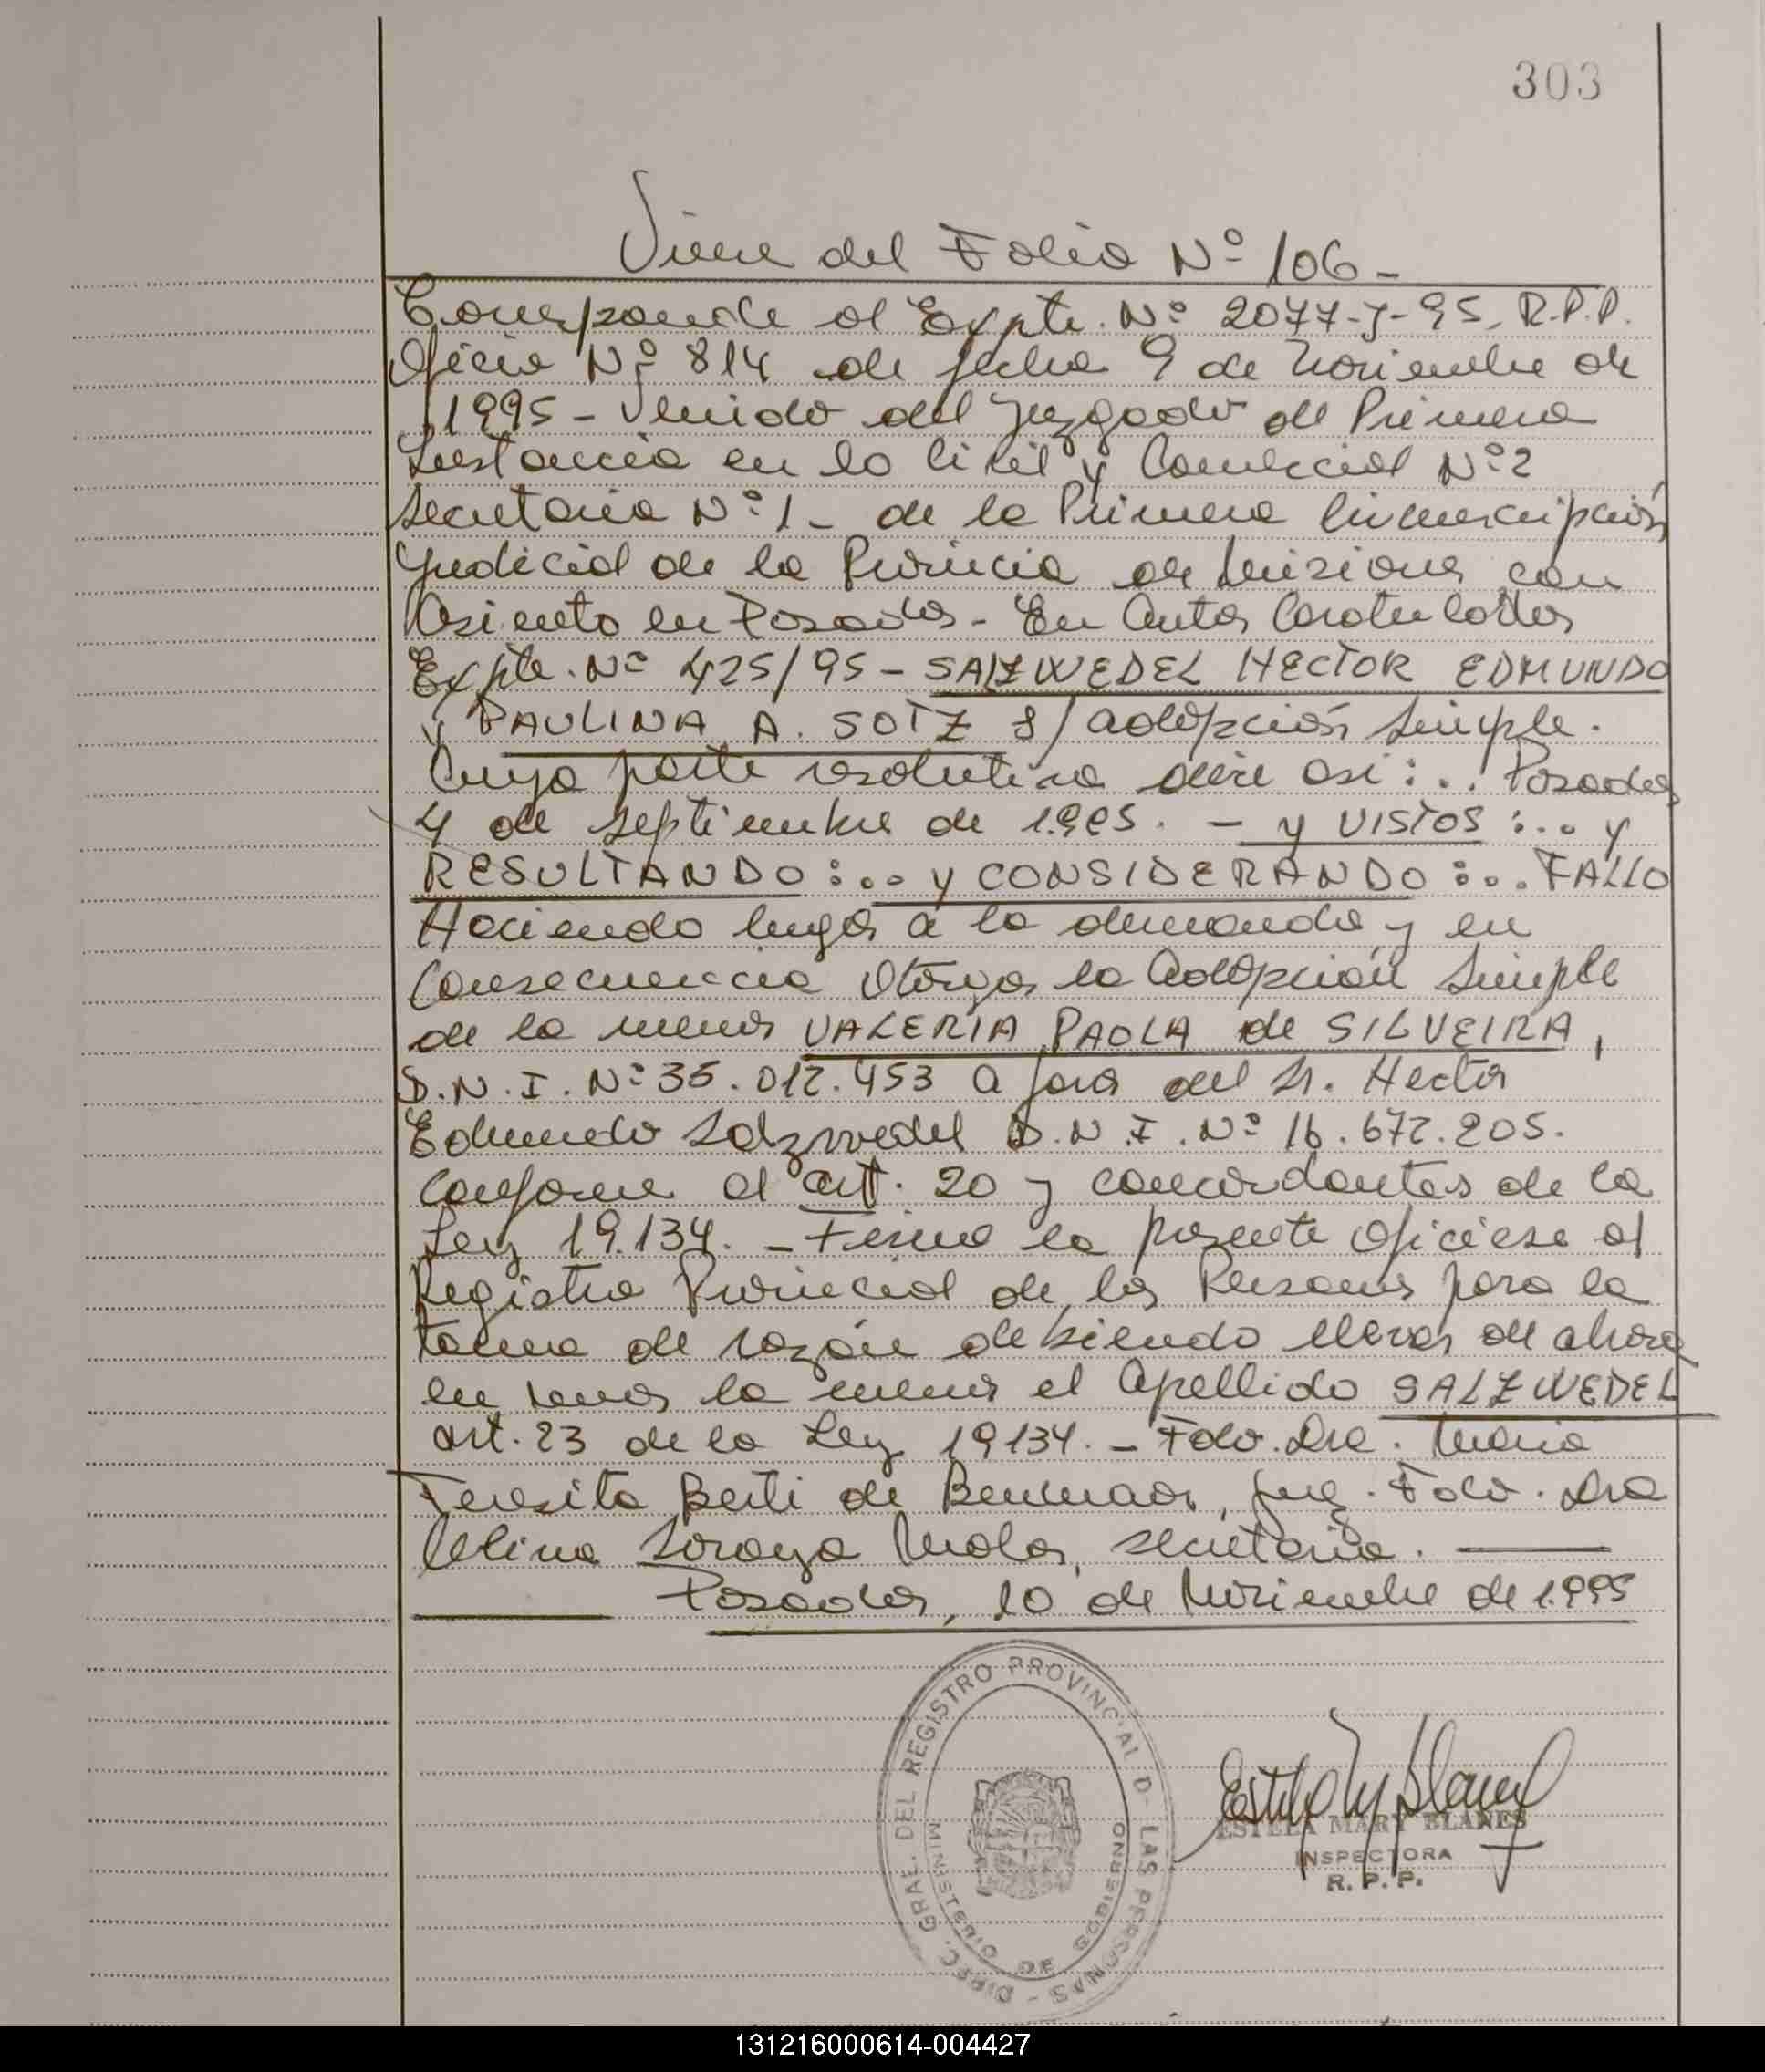 303
Viene del Folio Nº 106-
Corresponde al Expte. Nº 2077-J-95, R.P.P.
Oficio Nº 814 de fecha 9 de Noviembre de
1995 - Venido del Juzgado de Primera
Instancia en lo Civil y Comercial Nº 2
Secretaria Nº 1 - de la Primera Circunscripción
Judicial de la Provincia de Misiones con
Asiento en Posadas - En Autos Caratulados
Expte. Nº 425/95 - SALZWEDEL HECTOR EDMUNDO
y PAULINA A. SOTZ S/ adopción Simple.
Cuya parte resolutiva dice asi:.. Posadas
4 de Septiembre de 1.995. - y VISTOS:... y
RESULTANDO:... y CONSIDERANDO:... FALLO
Haciendo lugar a la demanda y en
Consecuencia Otorgar la Adopción Simple
de la menor VALERIA PAOLA de SILVEIRA,
D.N.I. Nº 35.012.453 a favor del Sr. Hector
Edmundo Salzwedel D.N.I. Nº 16.672.205.
Conforme al art. 20 y concordantes de la
Ley 19.134. - Firme la presente Ofíciese al
Registro Provincial de las Personas para la
toma de razón debiendo llevar de ahora
en mas la menor el Apellido SALZWEDEL
art. 23 de la Ley 19134. - Fdo. Dra. Maria
Teresita Berti de Benmaor, Juez. Fdo. Dra
Celina Soraya Molas, secretaria.
Posadas, 10 de Noviembre de 1.995
DIREC. GRAL. DEL REGISTRO PROVINCIAL D- LAS PERSONAS -
MINISTERIO DE GOBIERNO
ESTELA MARY BLANES
INSPECTORA
R. P. P.
131216000614-004427